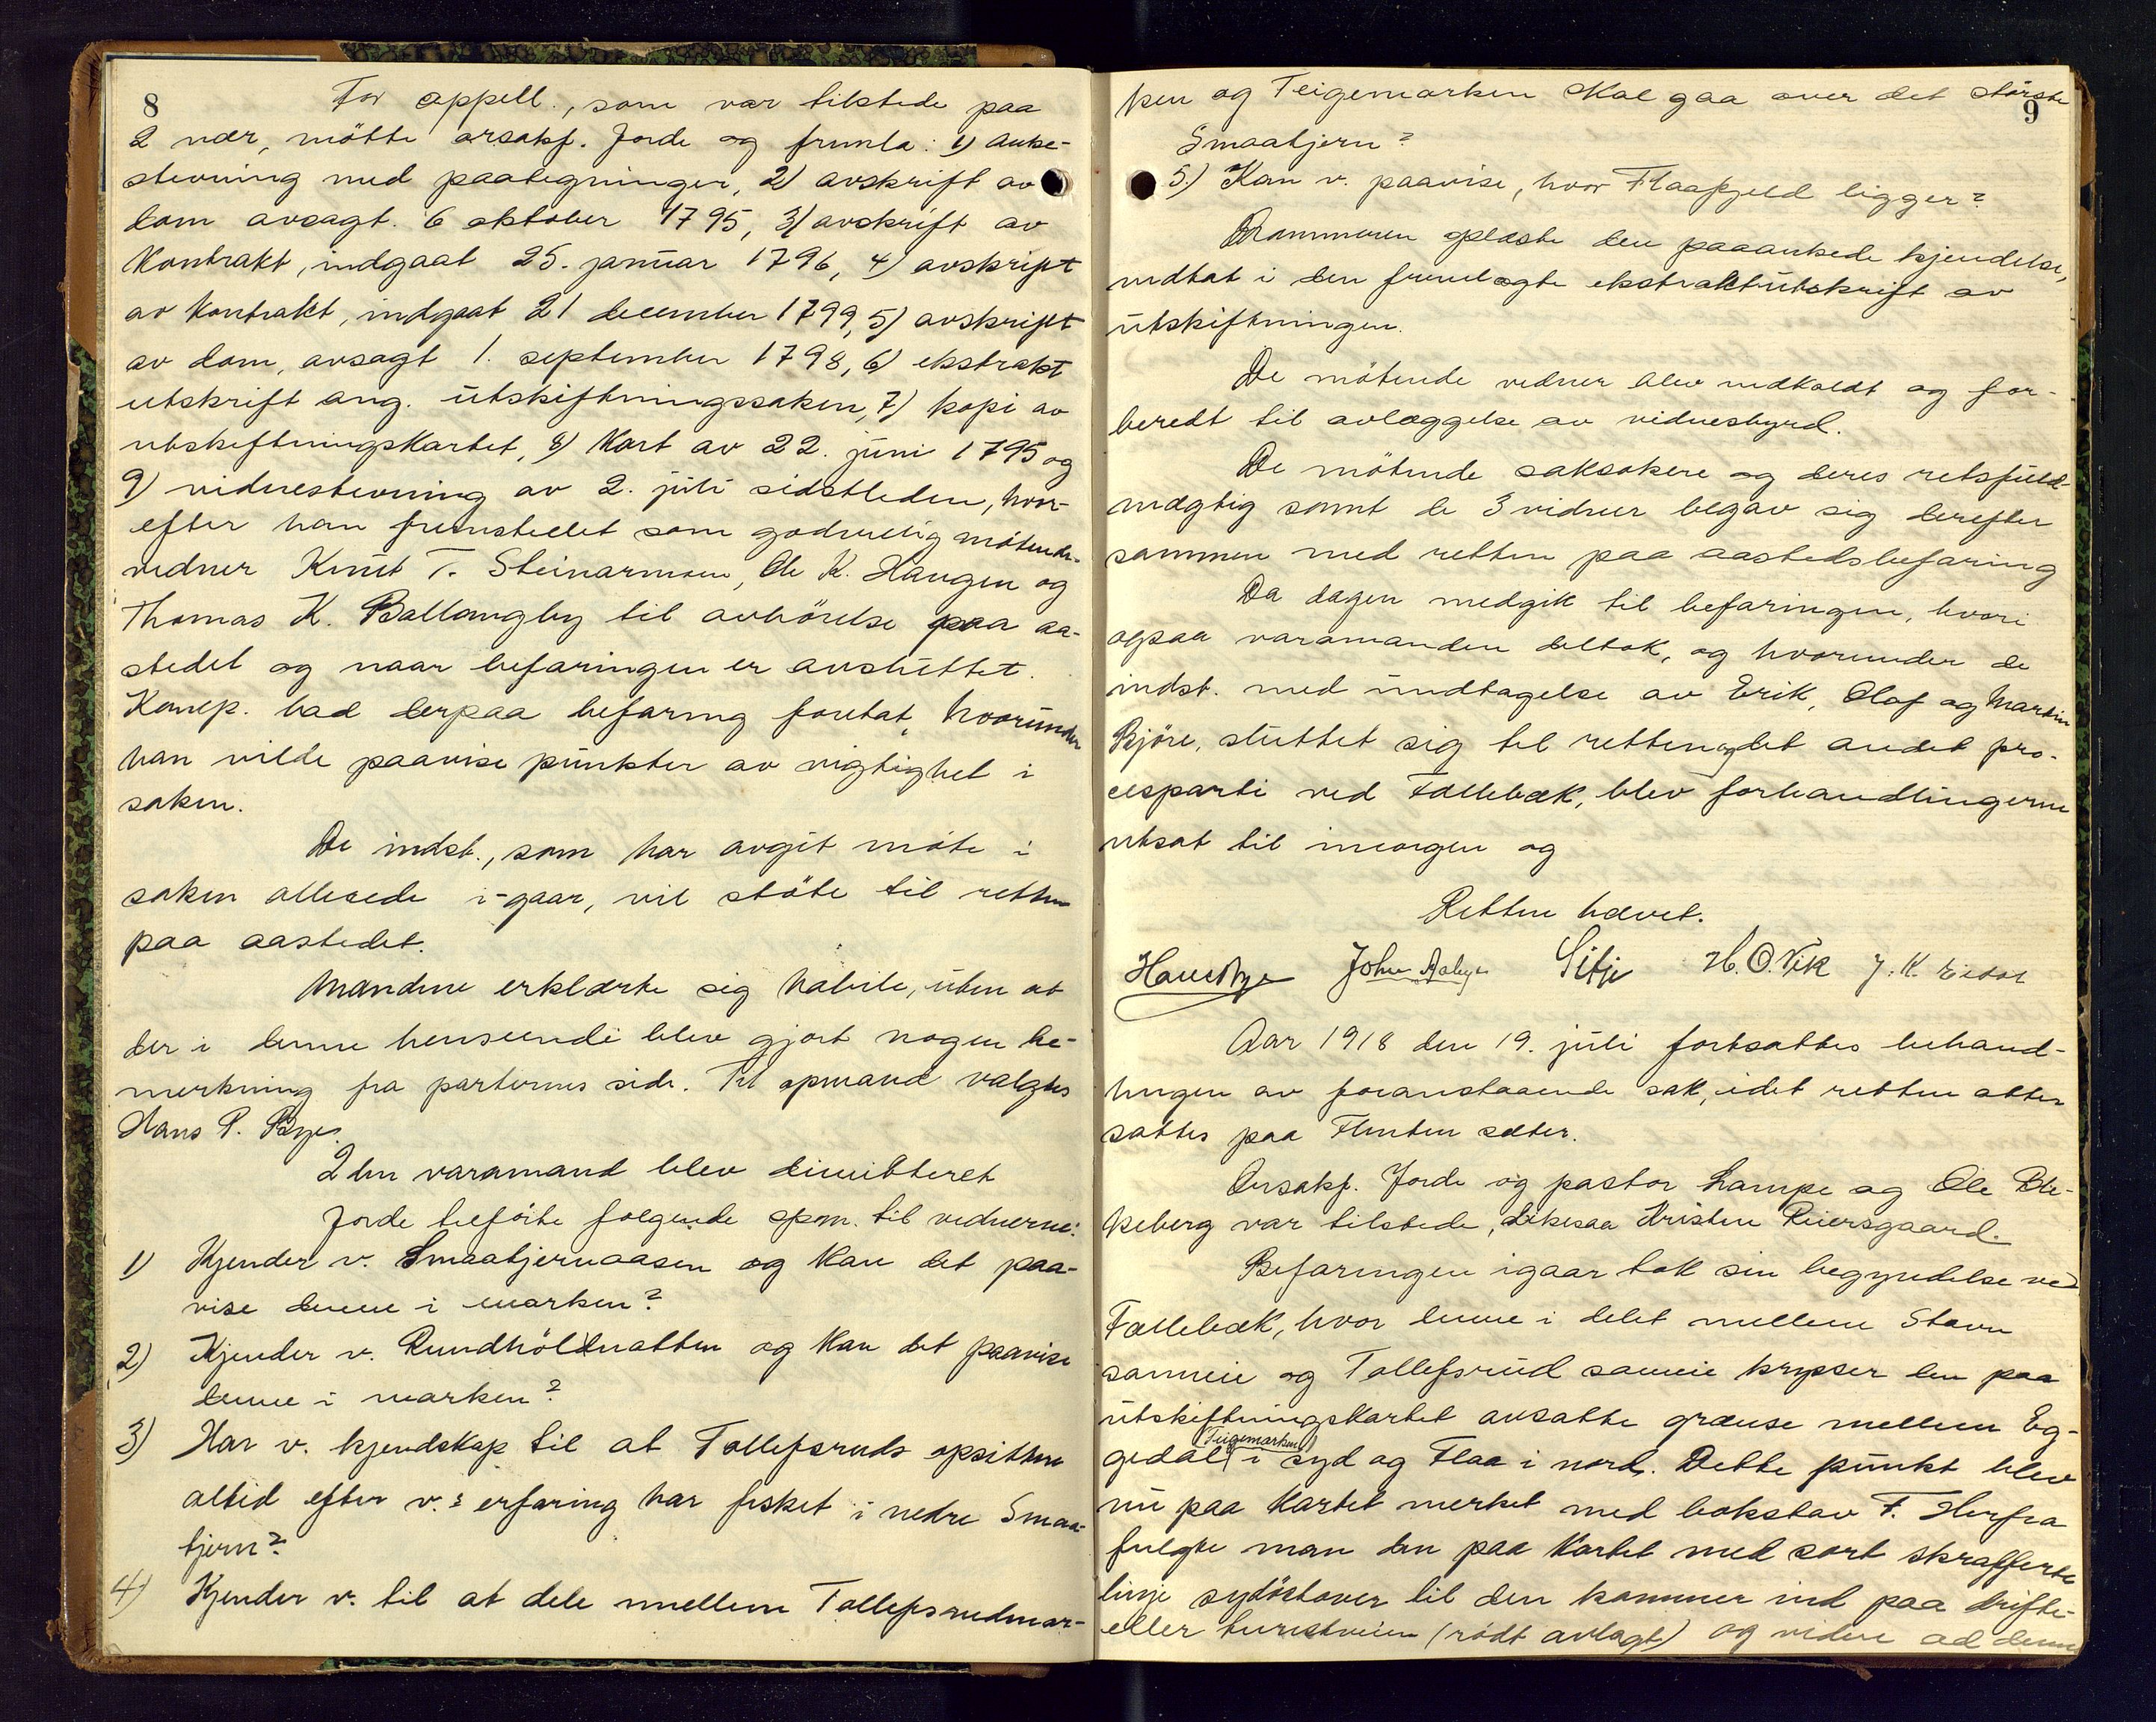 8
For appell., som var tilstede paa
2 nær, mötte orsakf. Jorde og fremla: 1) Anke-
stevning med paategninger, 2) avskrift av
dom avsagt. 6 oktober 1795, 3) avskrift av
Kontrakt, indgaat 25. januar 1796, 4) avskrift
av Kontrakt, indgaat 21 december 1799, 5) avskrift
av dom, avsagt 1. september 1798, 6) ekstrakt
utskrift ang. utskiftningssaken, 7) kopi av
utskiftningskartet, 8) Kart av 22. juni 1795 og
9) vidnestevning av 2. juli sidstleden, hvor-
efter han fremstillet som godvillig mötende
vidner Knut T. Steinarmoen, Ole K. Haugen og
Thomas K. Ballangby til avhörelse paa aa-
stedet og naar befaringen er avsluttet.
Komp. bad derpaa befaring foretat, hvorunder
han vilde paavise punkter av vigtighet i
saken.
De indst., som har avgit möte i
saken allerede i-gaar, vil stöte til retten
paa aastedet.
Mændene erklærte sig habile, uten at
der i denne henseende blev gjort nogen be-
merkning fra parternes side. Til opmand valgtes
Hans P. Bye.
2den varamand blev dimitteret
Jorde tilförte følgende spm. til vidnerne:
1) Kjender v. Smaatjernaasen og kan det paa-
vise denne i marken?
2) Kjender v. Rundhöldnatten og kan det paavise
denne i marken?
3) Har v. kjendskap til at Tollefsruds opsittere
altid efter v.s erfaring har fisket i nedre Smaa-
tjern?
4) Kjender v. til at dele mellem Tollefsrudmar-
9
ken og Teigemarken skal gaa over det störste
Smaatjern?
5.) Kan v. paavise, hvor Flaafjeld ligger?
Dommeren oplæste den paaankede kjendelse,
indtat i den fremlagte ekstraktutskrift av
utskiftningen.
De mötende vidner blev indkaldt og for-
beredt til avlæggelse av vidnesbyrd.
De mötende saksökere og deres retsfuld-
mægtig samt de 3 vidner begav sig derefter
sammen med retten paa aastedsbefaring
Da dagen medgik til befaringen, hvori
ogsaa varamanden deltok, og hvorunder de
indst. med undtagelse av Erik, Olaf og Martin
Björe, sluttet sig til retten og det andet pro-
cesparti ved Follebæk, blev forhandlingerne
utsat til imorgen og
Retten hævet.
Hans Bye John Aabye Sitje H. O. Vik J. K. Eidal
Aar 1918 den 19. juli fortsattes behand-
lingen av foranstaaende sak, idet retten atter
sattes paa Flenten sæter.
Orsakf. Jorde og pastor Lampe og Ole Ble-
keberg var tilstede, likesaa Kristen Reiersgaard.
Befaringen igaar tok sin begyndelse ved
Follebæk, hvor denne i delet mellem Stavn
sameie og Tollefsrud sameie krysser den paa
utskiftningskartet avsatte grænse mellem Eg-
(Teigemarken)
gedal i syd og Flaa i nord. Dette punkt blev
nu paa kartet merket med bokstav F. Herfra
fulgte man den paa kartet med sort skrafferte
linje sydöstover til den kommer ind paa drifte-
eller turistveien (rödt avlagt) og videre ad denne